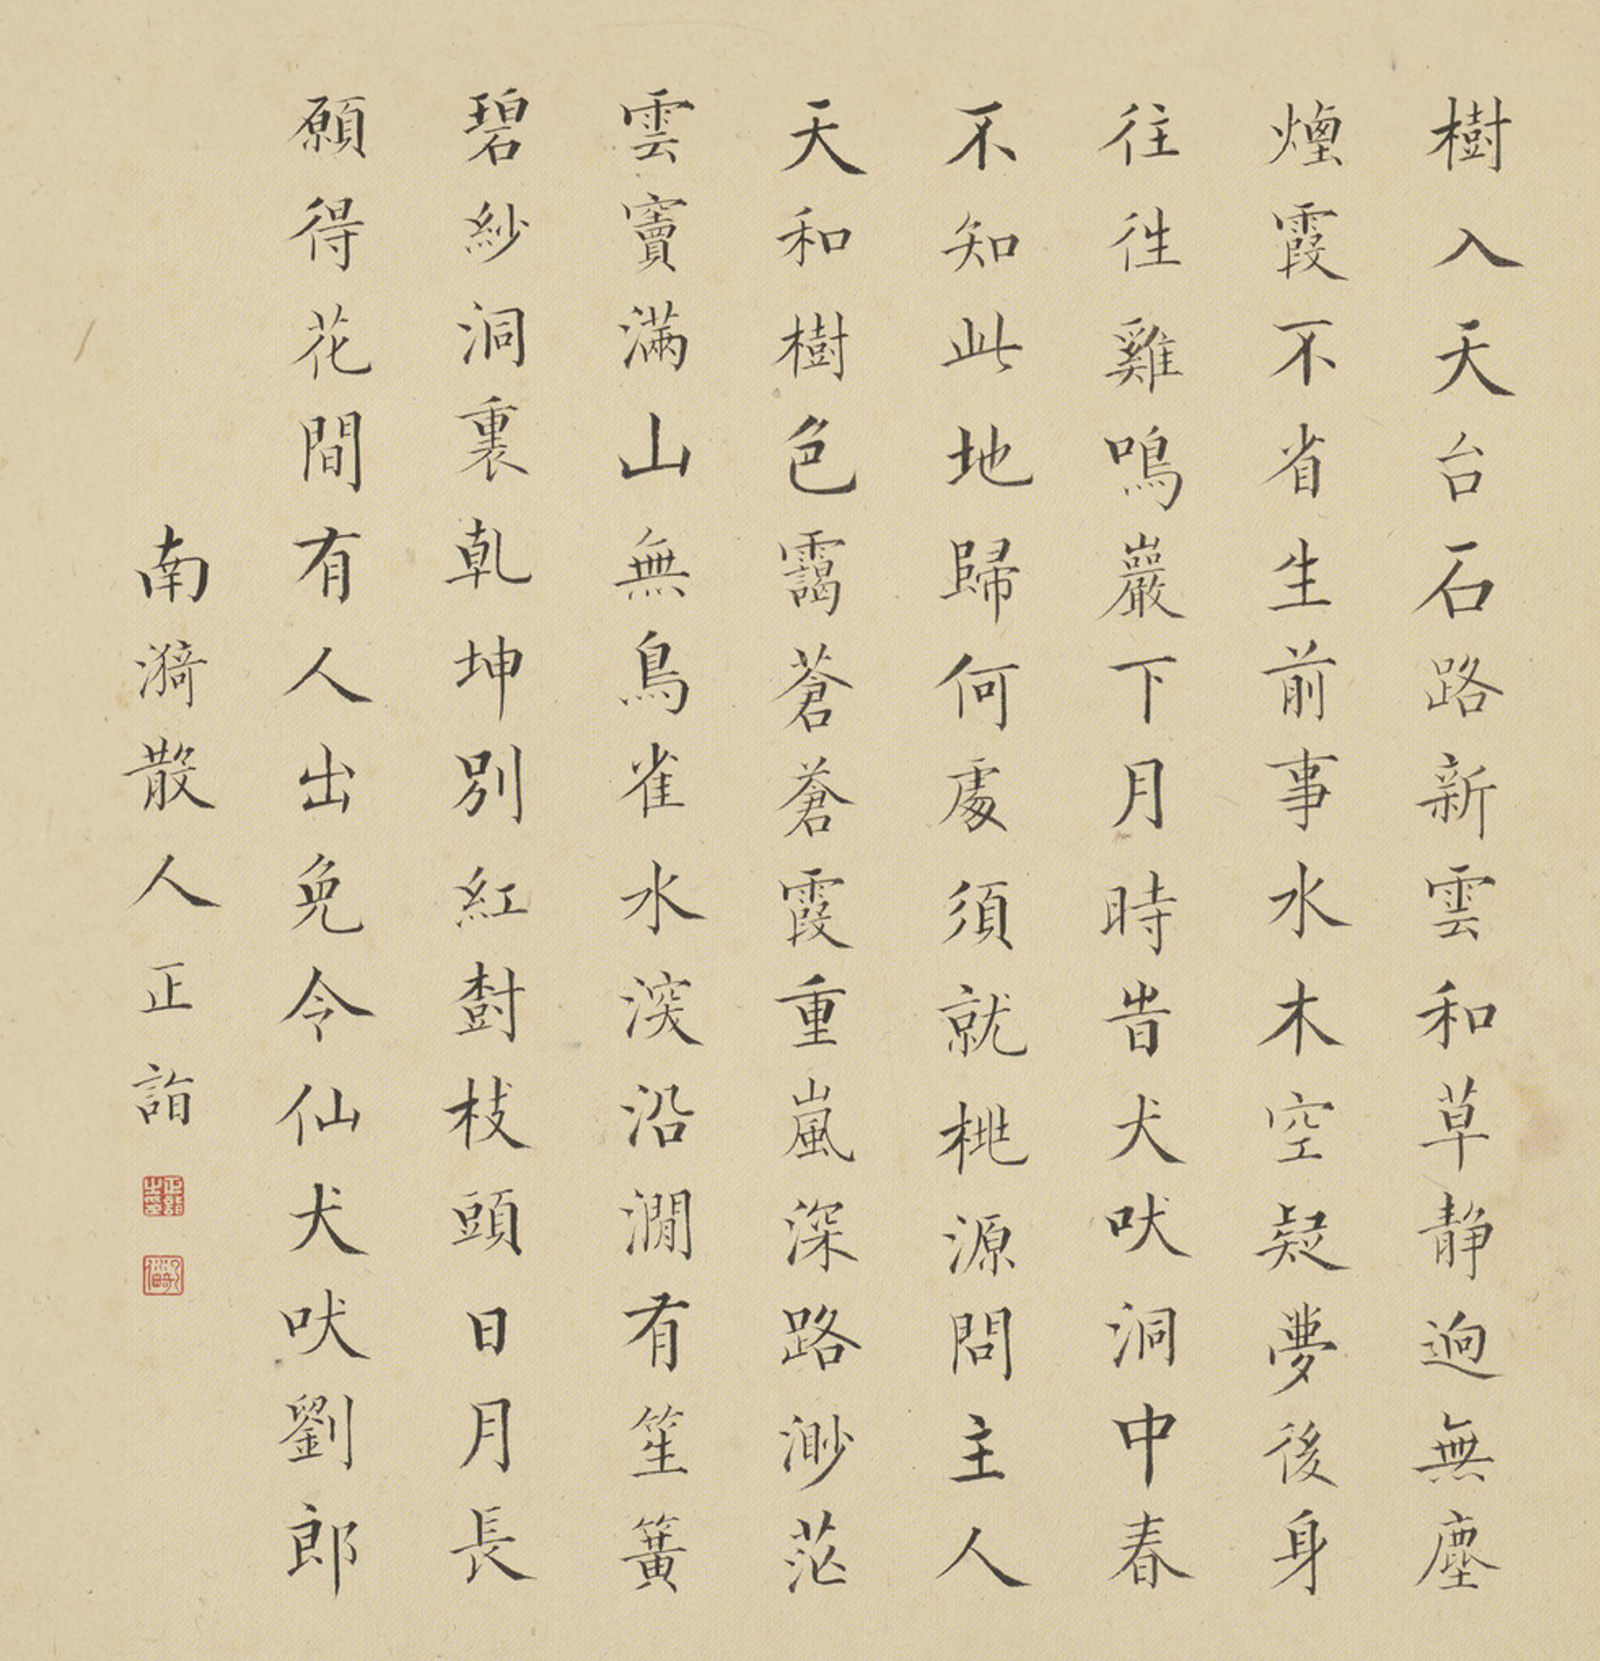 樹入天台石路新雲和草静迥無塵
煙霞不省生前事水木空疑夢後身
往徃雞鳴巖下月時旹犬吠洞中春
不知此地歸何處須就桃源問主人
天和樹色靄蒼蒼霞重嵐深路渺茫
雲竇滿山無鳥雀水湥沿澗有笙簧
碧紗洞裏乾坤別紅樹枝頭日月長
願得花間有人出免令仙犬吠劉郎
南漪散人正詣